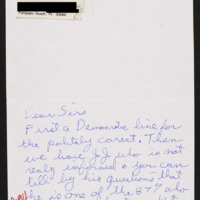 Pompano Beach, FL 33060
Dear Sirs
First a Democratic line for
the politely corect. Then
we have JJ who is not
realy impressed & you can
tell by his questions that
he is one of the 87% who